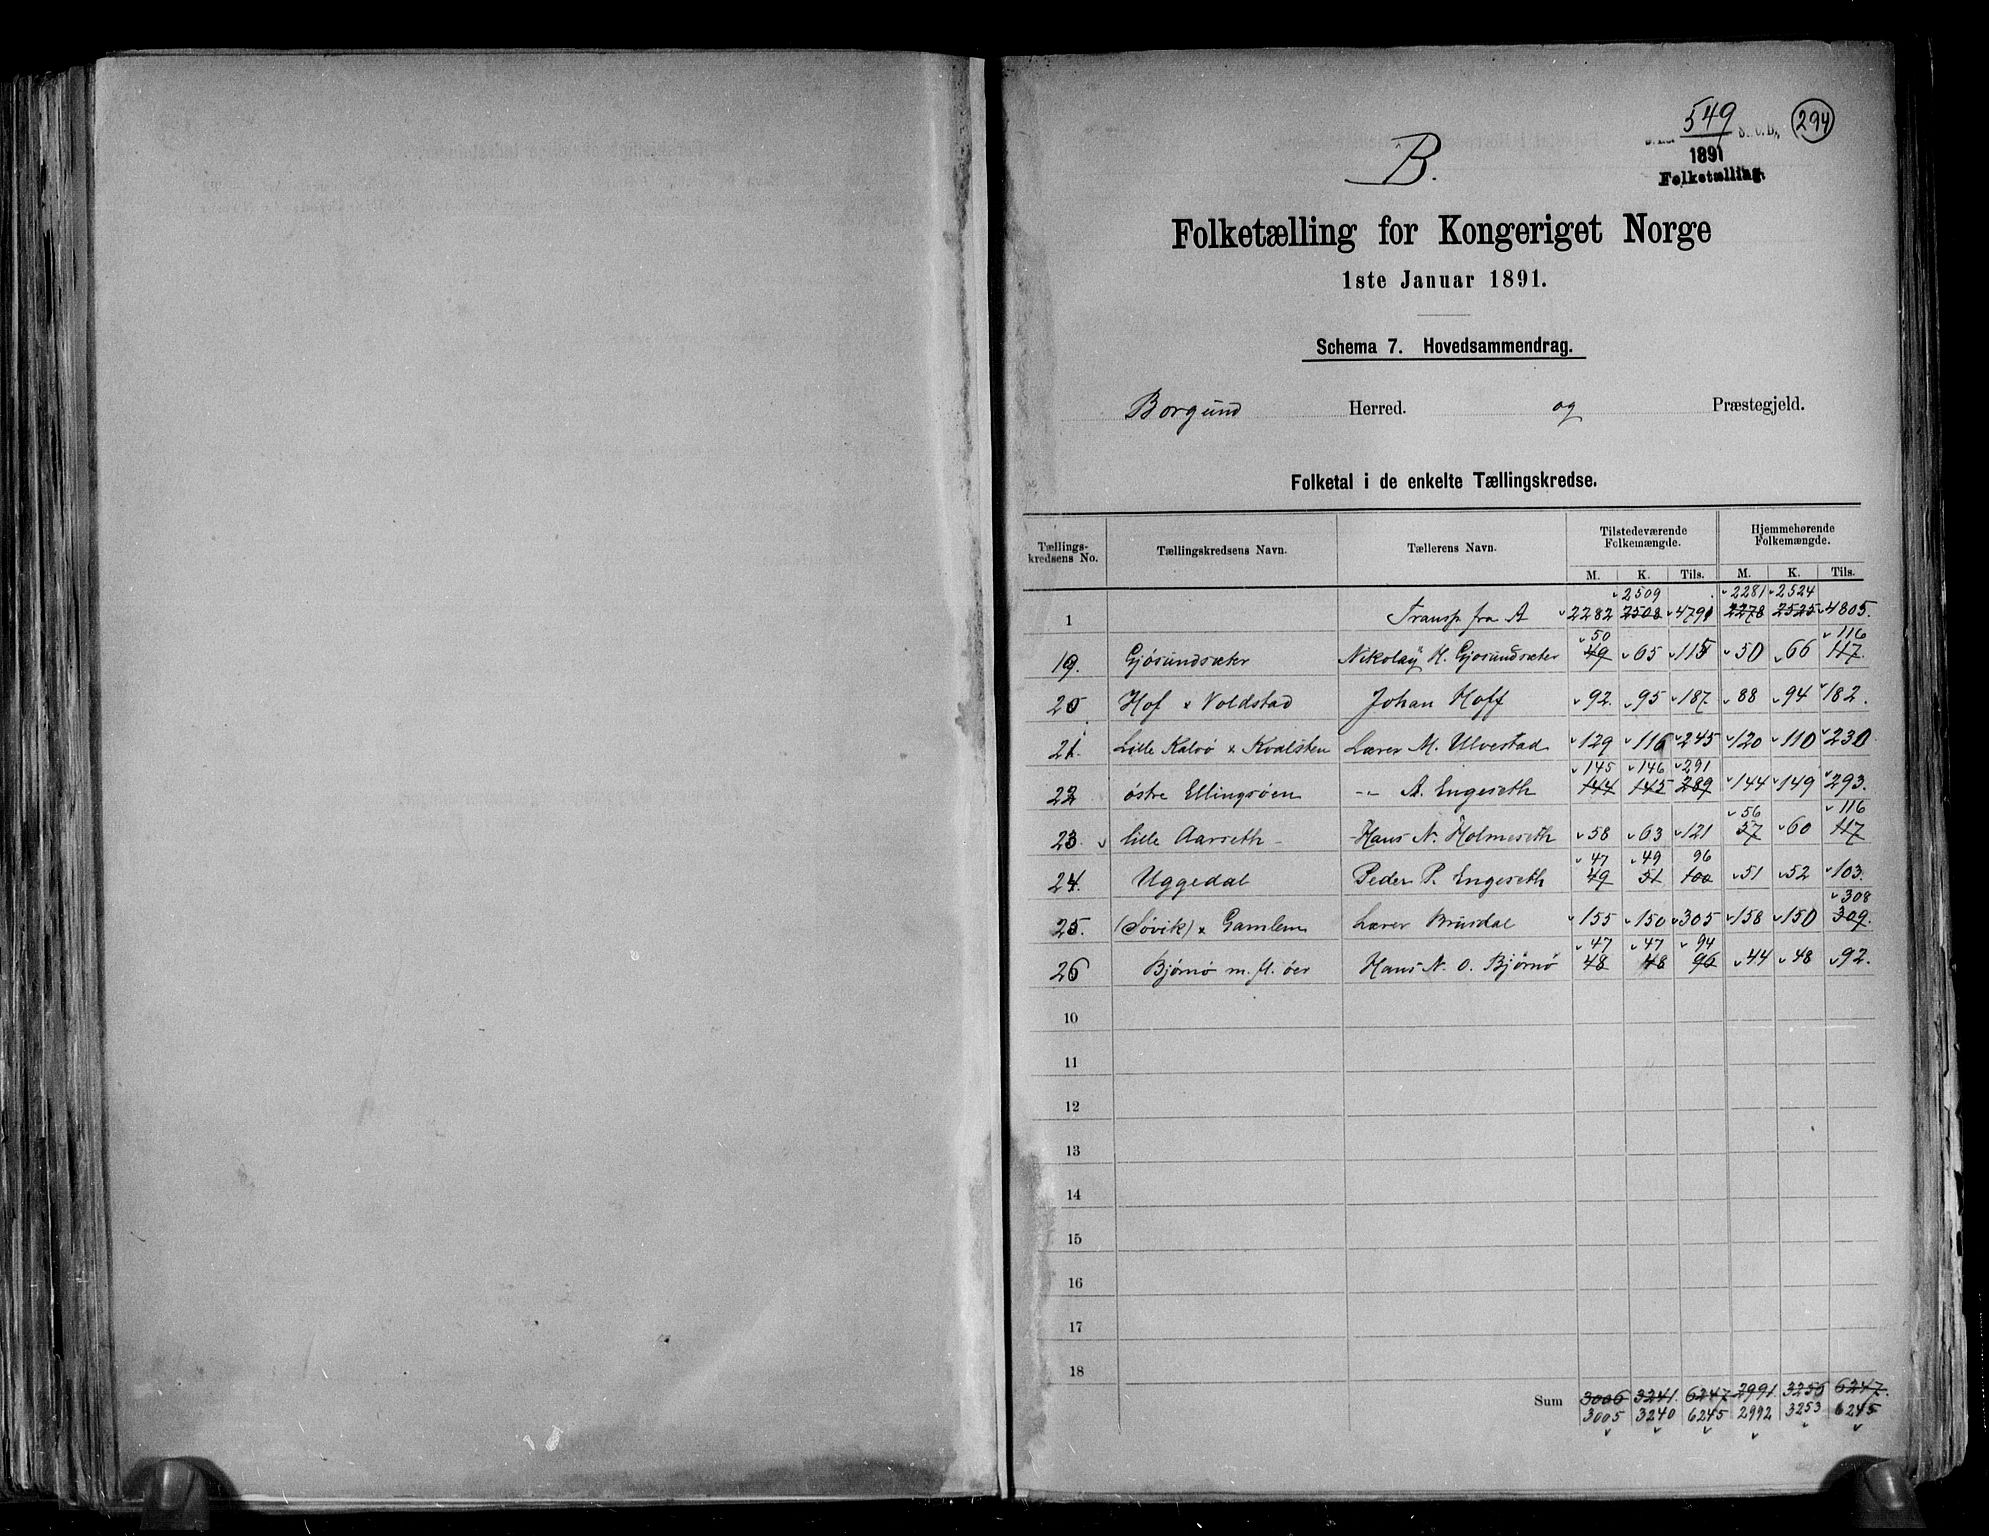 549
294
1891
Folketælling.
B.
Folketælling for Kongeriget Norge
1ste Januar 1891.
Schema 7. Hovedsammendrag.
Borgund Herred. og Præstegjeld.
Folketal i de enkelte Tællingskredse.
Tællings-kredsens No. Tællingskredsens Navn. Tællerens Navn. Tilstedeværende Folkemængde. Hjemmehørende Folkemængde.
M. K. Tils. M. K. Tils.
2509 2281 2524
1 Transp fra A 2282 2508 4791 2278 2525 4805.
50 116
19. Gjøsundsæter Nikolaÿ H. Gjøsundsæter 49 65 115 50 66 117.
20 Hof x Voldstad Johan Hoff 92. 95 187. 88 94 182.
21. Lille Kalvø x Kvalsten Lærer M. Ulvestad 129 116 245 120 110 230
145 146 291
22 østre Ellingsøen -"- A. Engeseth 144 145 289 144 149 293.
56 116
23. lille Aarseth - Hans N. Holmeseth 58 63 121 57 60 117
47 49 96
24. Uggedal Peder P. Engeseth 49 51 100 51 52 103.
308
25. (Søvik) x Gamlem Lærer Brusdal 155 150 305 158 150 309.
47 47 94
26 Bjørnø m. fl. øer Hans N. o. Bjørnø 48 48 96 44 48 92.
10
11
12
13
14
15
16
17
18
Sum 3006 3241. 6247 2991. 3256 6247.
3005 3240 6245 2992 3253 6245